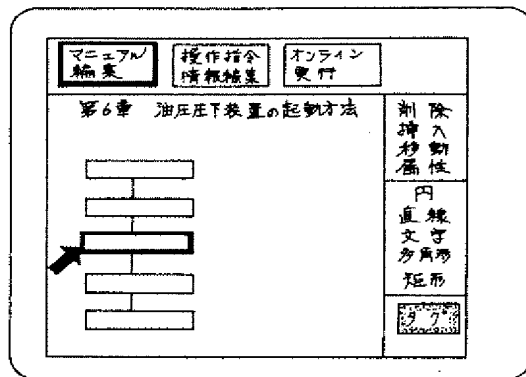 マニュアル
編集
操作指令
情報編集
オンライン
実行
第6章 油圧圧下装置の起動方法
削除
挿入
移動
属性
円
直線
文字
多角形
矩形
タグ